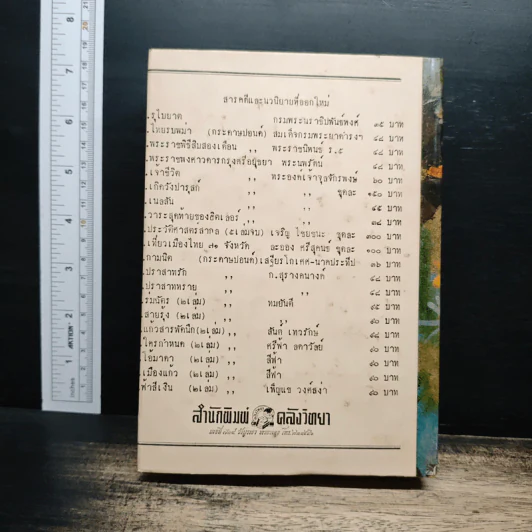 สารคดีและนวนิยายที่ออกใหม่
รุไบยาต กรมพระนราธิปพันธ์พงศ์ ๓๕ บาท
ไทยรบพม่า (กระดาษปอนด์) สมเด็จกรมพระยาดำรงฯ ๔๘ บาท
พระราชพิธีสิบสองเดือน ,, พระราชนิพนธ์ ร.๕ ๔๔ บาท
พระราชพงศาวดารกรุงศรีอยุธยา พระนพรัตน์ ๔๘ บาท
เจ้าชีวิต ,, พระองค์เจ้าจุลจักรพงษ์ ๖๐ บาท
เกิดวังปารุสก์ ,, ,, ชุดละ ๑๕๐ บาท
เนลสัน ,, ,, ๔๕ บาท
วาระสุดท้ายของฮิตเล่อร์ ,, ,, ๓๘ บาท
ประวัติศาสตร์สากล (๕เล่มจบ) เจริญ ไชยชนะ ชุดละ ๓๐๐ บาท
เที่ยวเมืองไทย ๗๑ จังหวัด ละออง ศรีสุคนธ์ ชุดละ ๑๐๐ บาท
กามนิต (กระดาษปอนด์) เสฐียรโกเศศ-นาคประทีป ๓๖ บาท
ปราสาทรัก ,, ก.สุรางคนางค์ ๔๘ บาท
ปราสาททราย ,, ,, ๔๘ บาท
ร่มฉัตร (๒เล่ม) ,, ทมยันตี บาท
สายรุ้ง (๒เล่ม) ,, ,, ๘๐ บาท
แก้วสารพัดนึก (๒เล่ม) ,, สันต์ เทวรักษ์ บาท
ใครกำหนด (๒เล่ม) ,, ศรีฟ้า ลดาวัลย์ ๘๐ บาท
โอ้มาดา (๒เล่ม) ,, สีฟ้า ๘๐ บาท
เมืองแก้ว (๒เล่ม) ,, สีฟ้า ๘๐ บาท
ฟ้าสีเงิน (๒เล่ม) ,, เพ็ญแข วงศ์สง่า ๘๐ บาท
สำนักพิมพ์ คลังวิทยา